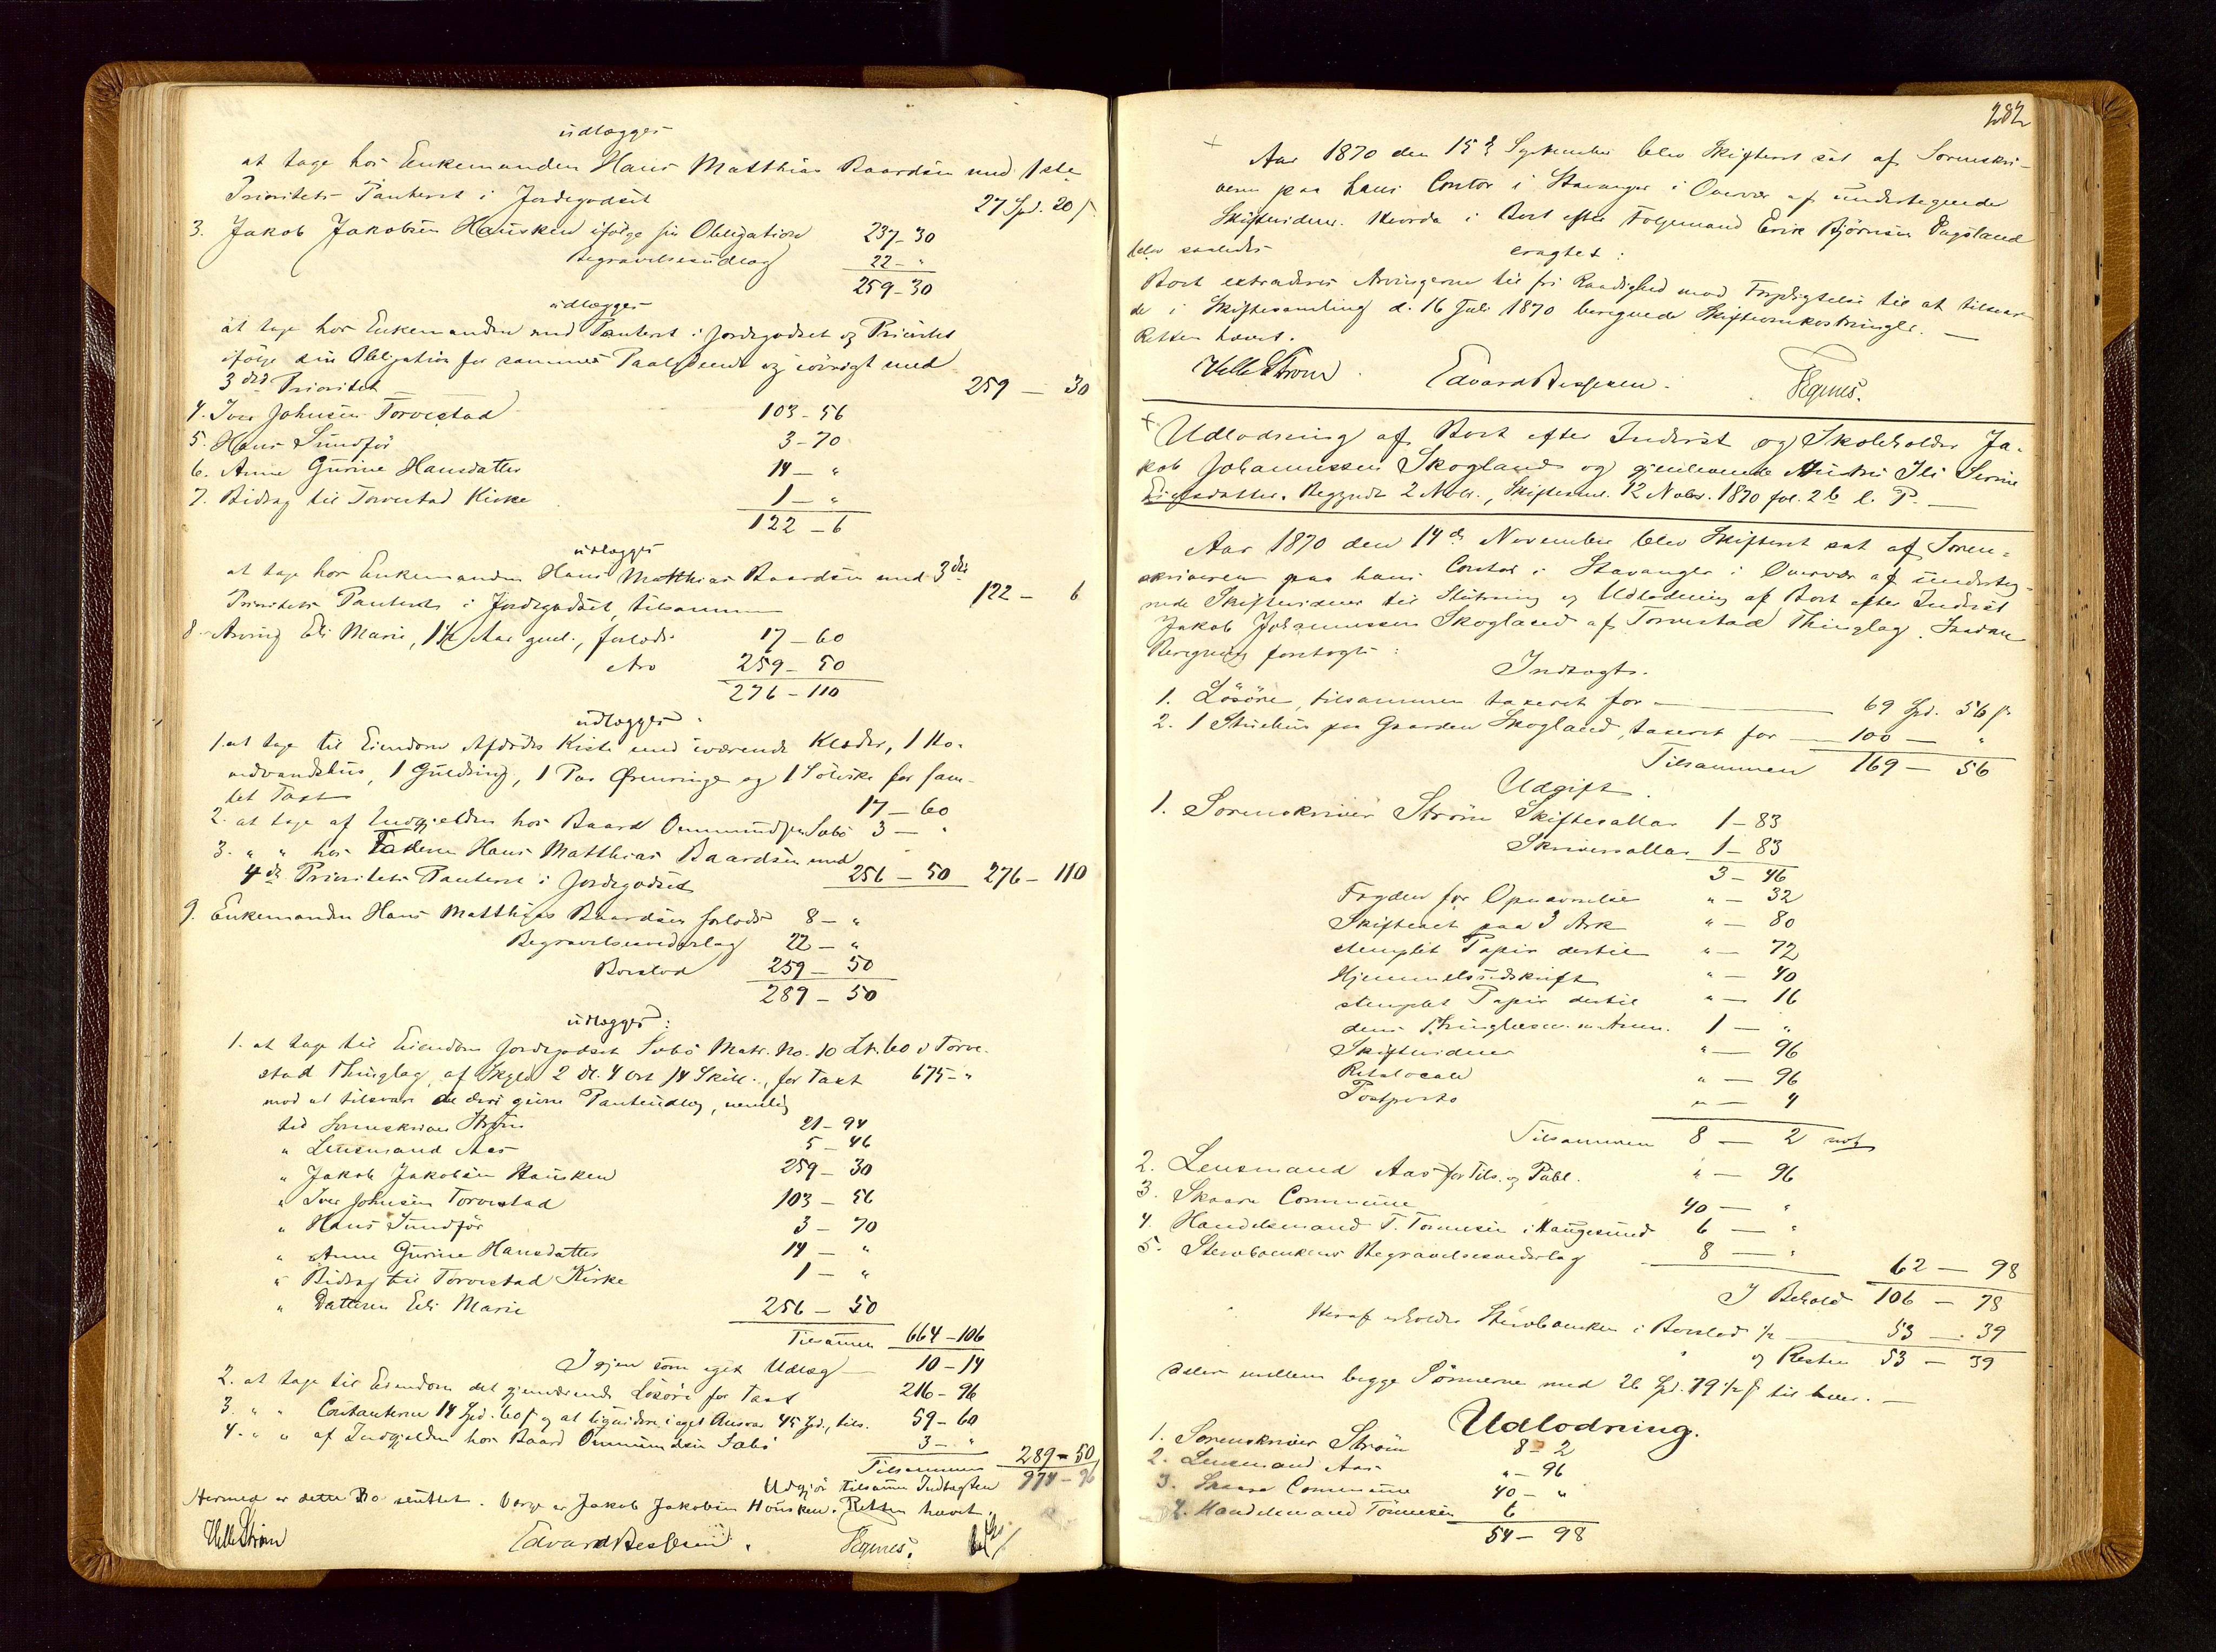 udlægges
at tage hos Enkemanden Hans Matthias Baardsen med 1ste
Prioritets Panteret i Jordegodset 27 Spd. 20 s.
3. Jakob Jakobsen Hausken ifølge sin Obligation 237-30
Begravelsesudlæg 22 - "
259-30
udlægges
at tage hos Enkemanden med Panteret i Jordegodset og Prioritet
ifølge sin Obligation for sammes Paalydende og iøvrigt med
3die Prioritet 259 - 30
4. Iver Johnsen Torvestad 103-56
5. Hans Sundför 3-70
6. Anne Gurine Hansdatter 14 - "
7. Bidrag til Torvestad Kirke 1 - "
122 - 6
udlægges
at tage hos Enkemanden Hans Matthias Baardsen med 3die
Prioritets Panteret i Jordegodset, tilsammen 122 - 6
8. Arving Eli Marie, 1½ Aar gml., forlods 17-60
Arv 259-50
276-110
udlægges:
1. at tage til Eiendom Afdødes Kiste med iværende Klæder, 1 Ho-
vedvandshus, 1 Guldring, 1 Par Ørenringe og 1 Sölvske for sam-
let Taxt 17-60
2. at tage af Indgjelden hos Baard Ommundsen Sæbö 3 - "
3. " " hos Faderen Hans Matthias Baardsen med
4de Prioritets Panteret i Jordegodset 256-50 276-110
9. Enkemanden Hans Matthias Baardsen forlods 8 - "
Begravelsesvederlag 22 - "
Boeslod 259-50
289-50
udlægges:
1. at tage til Eiendom Jordegodset Sæbö Matr. No. 10 L.No. 60 i Torve-
stad Thinglag, af Skyld 2 Dl. 4 Ort 14 Skill., for Taxt 675 - "
mod at tilsvare de deri givne Panteudlæg, nemlig
til Sorenskriver Strøm 21-94
" Lensmand Aas 5-46
" Jakob Jakobsen Hausken 259-30
" Iver Johnsen Torvestad 103-56
" Hans Sundför 3-70
" Anne Gurine Hansdatter 14 - "
" Bidrag til Torvestad Kirke 1 - "
" Datteren Eli Marie 256-50
Tilsammen 664-106
Igjen som eget Udlæg 10-14
2. at tage til Eiendom det gjenværende Lösöre for Taxt 216-96
3. " " Contanterne 14 Spd. 60 s og at liquidere i eget Ansvar 45 Spd., tils. 59-60
4. " " af Indgjelden hos Baard Ommundsen Sæbö 3 - "
Tilsammen 289-50
Udgjör tilsammen Indtægten 974-96
Hermed er dette Bo sluttet. Værge er Jakob Jakobsen Hausken. Retten hævet.
Helle Strøm Edvard Hegnes.
282
+ Aar 1870 den 15de September blev Skifteret sat af Sorenskri-
veren paa hans Contor i Stavanger i Overvær af undertegnede
Skiftevidner. Hvorda i Boet efter Følgemand Erik Bjørnsen Vagsland
blev saaledes eragtet:
Boet extraderes Arvingerne til fri Raadighed mod Forpligtelse til at tilsvare
de i Skiftesamling d. 16 Juli 1870 beregnede Skifteomkostninger. —
Retten hævet.
Helle Strøm. Edvard Hegnes.
+ Udlodning af Boet efter Inderst og Skoleholder Ja-
kob Johannessen Skogland og gjenlevende Hustru Serine
Begyndt 2 Novbr., 12 Novbr. 1870 fol. 2b l. P. —
Aar 1870 den 14de November blev Skifteret sat af Soren-
skriveren paa hans Contor i Stavanger i Overvær af underteg-
nede Skiftevidner til Slutning og Udlodning af Boet efter Inderst
Jakob Johannessen Skogland af Torvestad Thinglag. Saadan
Beregning foretoges:
Indtægt.
1. Lösöre, tilsammen taxeret for — 69 Spd. 56 s.
2. 1 Stuehus paa Gaarden Skogland, taxeret for — 100 - "
Tilsammen 169 - 56
Udgift.
1. Sorenskriver Strøm Skiftesallar 1-83
Skriversallar 1-83
3-46
Fogden for Opnævnelse " - 32
Skifteact paa 3 Ark " - 80
stemplet Papir dertil " - 72
Hjemmelsudskrift " - 40
stemplet Papir dertil " - 16
dens Thinglæsn. m. Anm. 1 - "
Skiftevidner " - 96
Retslocale " - 96
Postporto " - 4
Tilsammen 8 - 2
2. Lensmand Aas for Tils. og Publ. " - 96
3. Skaare Commune 40 - "
4. Handelsmand T. Tönnesen i Haugesund 6 - "
5. Stervboenkens Begravelsesvederlag 8 - "
62 - 98
I Behold 106 - 78
Heraf erholder Stervboenken i Boeslod ½ — 53 - 39
og Resten 53 - 39
deles mellem begge Sønnerne med 26 Spd. 79½ s til hver. —
Udlodning.
1. Sorenskriver Strøm 8-2
2. Lensmand Aas " - 96
3. Skaare Commune 40 - "
4. Handelsmand Tönnesen 6
54-98